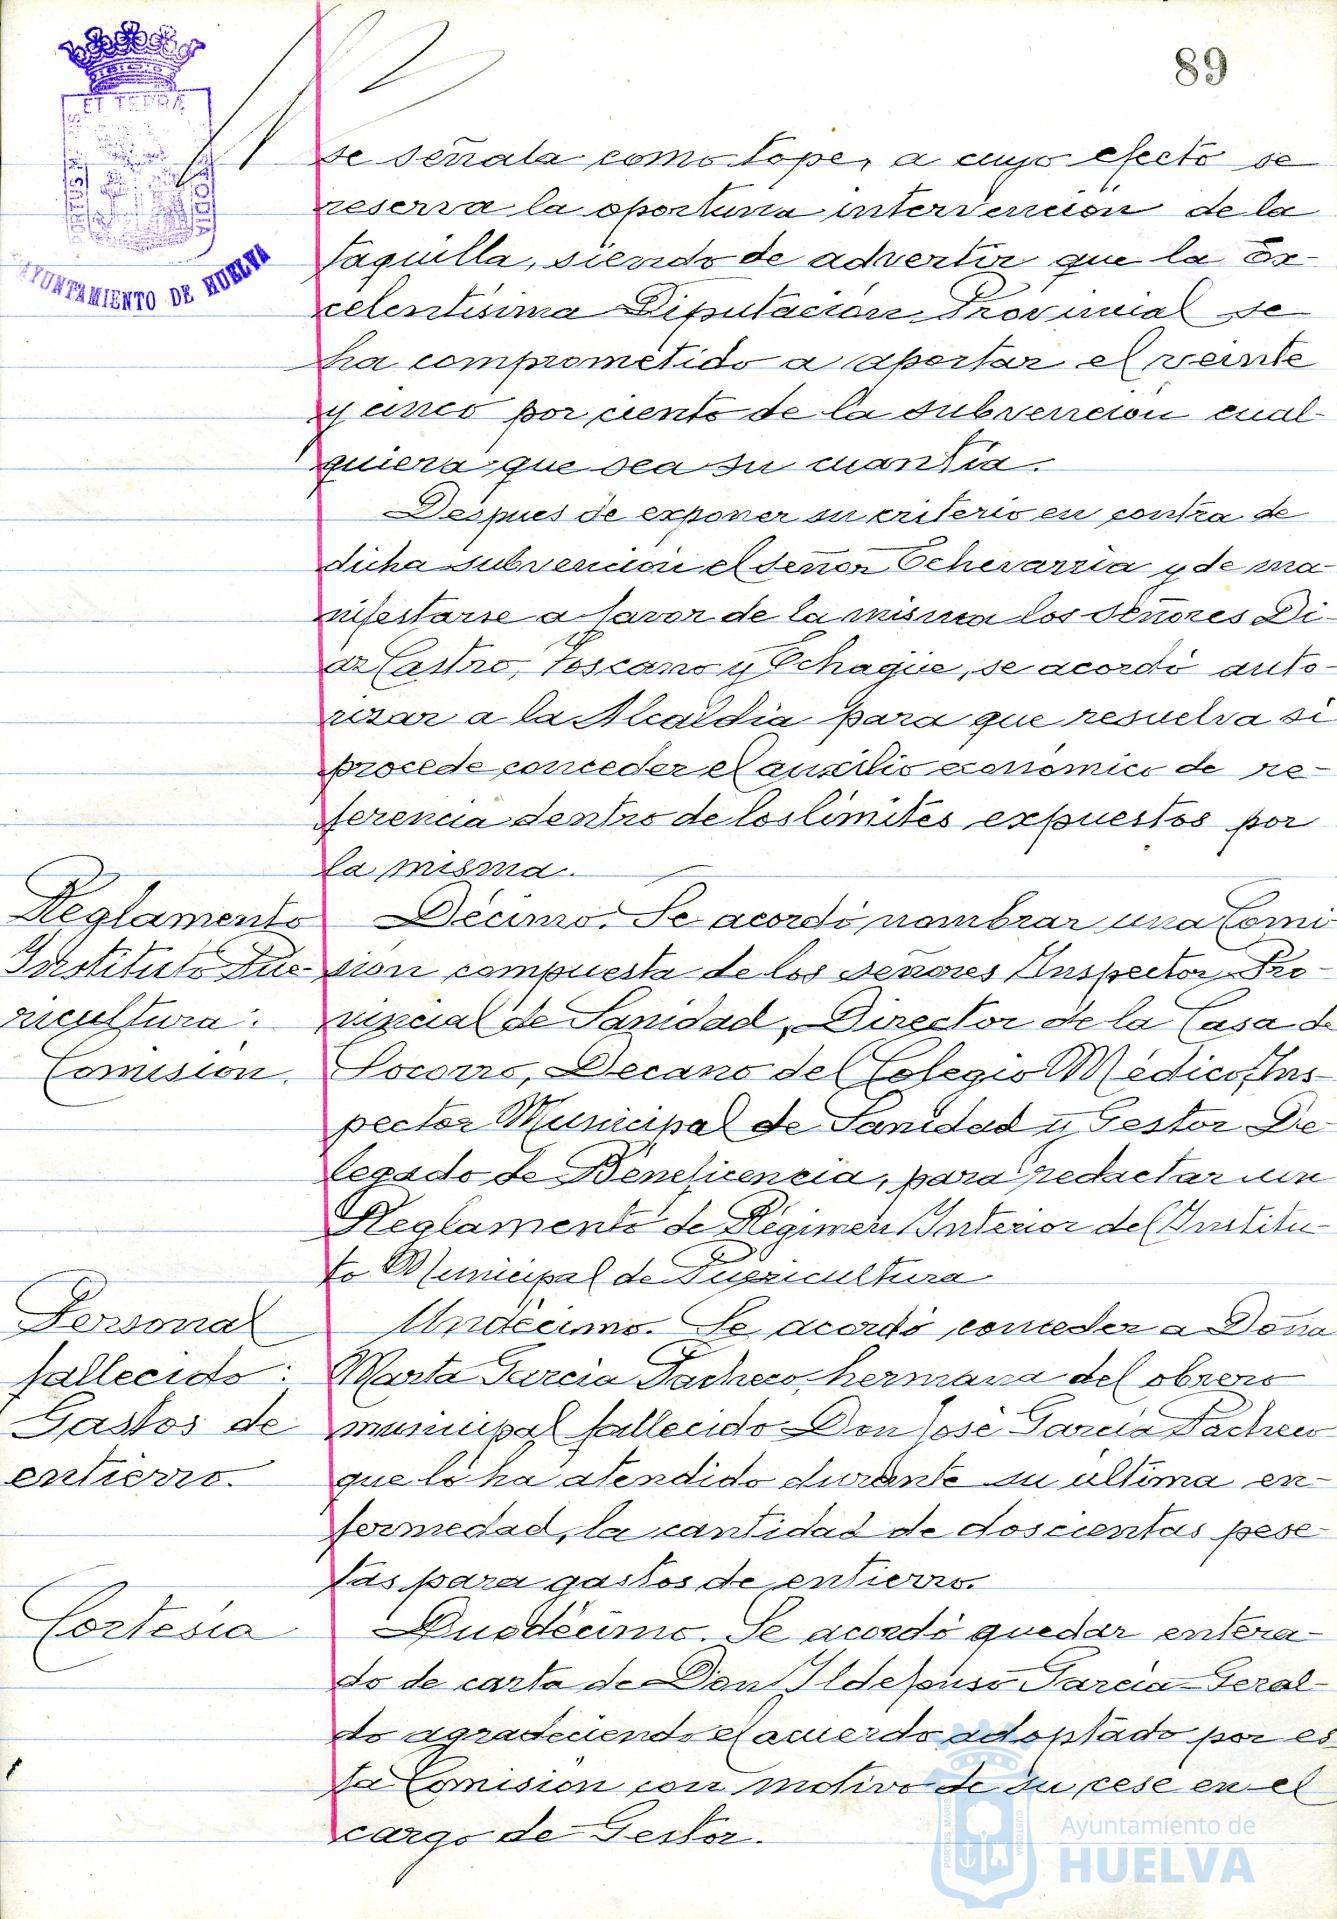 89
PORTUS MARIS ET TERRÆ CUSTODIA
AYUNTAMIENTO DE HUELVA
se señala como tope, a cuyo efecto se
reserva la oportuna intervención de la
taquilla, siendo de advertir que la Ex-
celentísima Diputación Provincial se
ha comprometido a aportar el veinte
y cinco por ciento de la subvención cual-
quiera que sea su cuantía.
Despues de exponer su criterio en contra de
dicha subvención el señor Echevarria y de ma-
nifestarse a favor de la misma los señores Di-
az Castro, Toscano y Echagüe, se acordó auto-
rizar a la Alcaldía para que resuelva si
procede conceder el auxilio económico de re-
ferencia dentro de los límites expuestos por
la misma.
Reglamento
Instituto Pue-
ricultura:
Comisión.
Décimo. Se acordó nombrar una Comi-
sión compuesta de los señores Inspector Pro-
vincial de Sanidad, Director de la Casa de
Socorro, Decano del Colegio Médico, Ins-
pector Municipal de Sanidad y Gestor De-
legado de Beneficencia, para redactar un
Reglamento de Régimen Interior del Institu-
to Municipal de Puericultura
Personal
fallecido:
Gastos de
entierro.
Undécimo. Se acordó conceder a Doña
Marta García Pacheco, hermana del obrero
municipal fallecido Don José García Pacheco
que lo ha atendido durante su última en-
fermedad, la cantidad de doscientas pese-
tas para gastos de entierro.
Cortesía
Duodécimo. Se acordó quedar entera-
do de carta de Don Ildefonso García-Geral-
do agradeciendo el acuerdo adoptado por es-
ta Comisión con motivo de su cese en el
cargo de Gestor.
PORTUS MARIS CUSTODIA
Ayuntamiento de
HUELVA